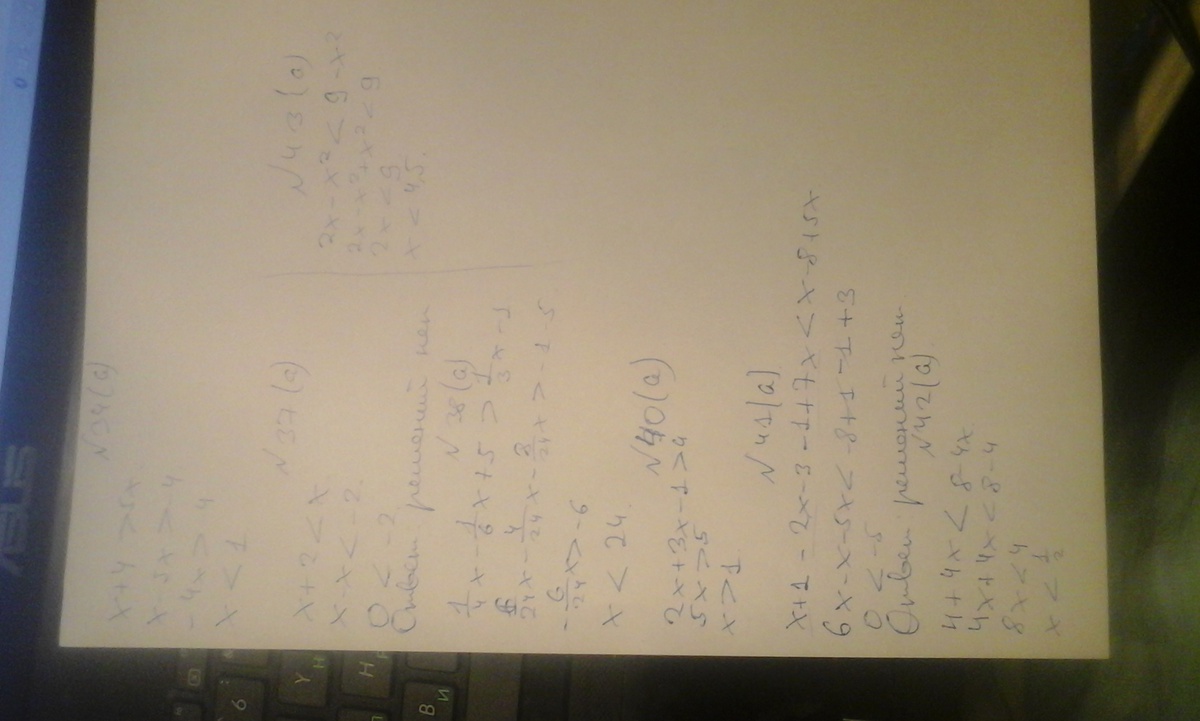 ASUS
N34(а)
x+4>5x
x-5x>-4
-4x>-4
x<1
N37(а)
x+2<x
x-x<-2
0<-2
Ответ решений нет
N38(а)
1/4x-1/6x+5>1/3x-1
6/24x-4/24x-8/24x>-1-5
-6/24x>-6
x<24.
N40(а)
2x+3x-1>4
5x>5
x>1
N41(а)
x+1-2x-3-1+7x<x-8+5x
6x-x-5x<-8+1-1+3
0<-5
Ответ решений нет
N42(а)
4+4x<8-4x
4x+4x<8-4
8x<4
x<1/2
N43(а)
2x-x²<9-x²
2x-x²+x²<9
2x<9
x<4,5.
6
Y
Н
H
В
И